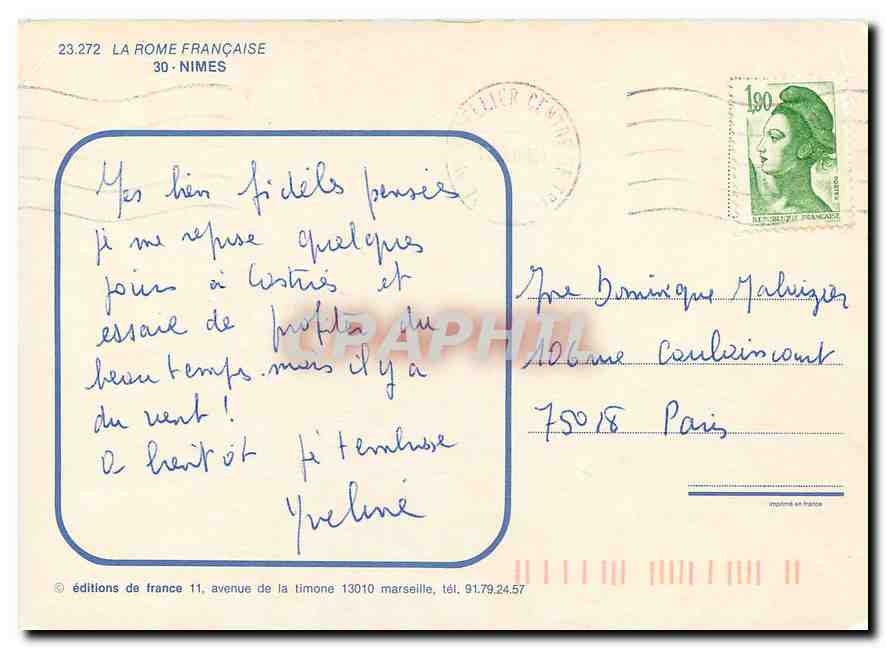 23.272 LA ROME FRANÇAISE
30 - NIMES
ELLIER CENTRE
1,90
POSTES
REPUBLIQUE FRANÇAISE
Mes bien fidèles pensées
je me repose quelques
jours à Castries et
essaie de profiter du
beau temps. mais il y a
du vent !
A bientôt je t'embrasse
Yveline
Mme Dominique
106 rue Caulaincourt
75018 Paris
imprimé en france
© éditions de france 11, avenue de la timone 13010 marseille, tél. 91.79.24.57
CPAPHIL